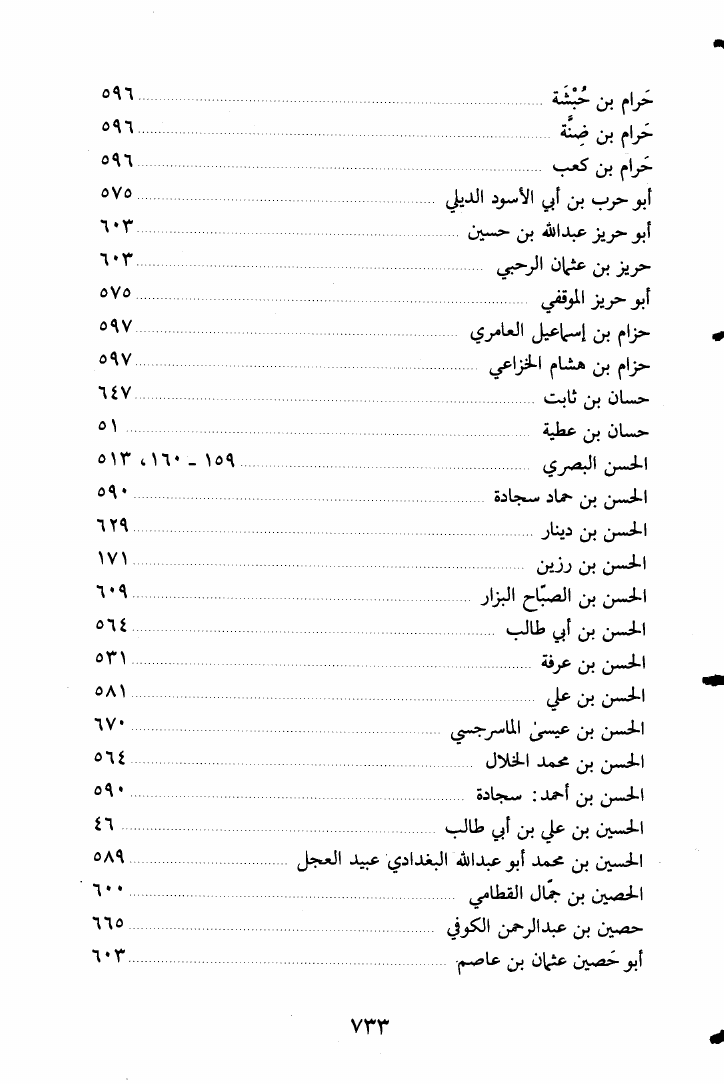 حَرام بن حُبْشَة ........ ٥٩٦
حَرام بن ضِنَّة ........ ٥٩٦
حَرام بن كعب ........ ٥٩٦
أبو حرب بن أبي الأسود الديلي ........ ٥٧٥
أبو حريز عبدالله بن حسين ........ ٦٠٣
حريز بن عثمان الرحبي ........ ٦٠٣
أبو حريز الموقفي ........ ٥٧٥
حزام بن إسماعيل العامري ........ ٥٩٧
حزام بن هشام الخزاعي ........ ٥٩٧
حسان بن ثابت ........ ٦٤٧
حسان بن عطية ........ ٥١
الحسن البصري ........ ١٥٩ ـ ١٦٠، ٥١٣
الحسن بن حماد سجادة ........ ٥٩٠
الحسن بن دينار ........ ٦٢٩
الحسن بن رزين ........ ١٧١
الحسن بن الصبّاح البزار ........ ٦٠٩
الحسن بن أبي طالب ........ ٥٦٤
الحسن بن عرفة ........ ٥٣١
الحسن بن علي ........ ٥٨١
الحسن بن عيسىٰ الماسرجسي ........ ٦٧٠
الحسن بن محمد الخلال ........ ٥٦٤
الحسن بن أحمد: سجادة ........ ٥٩٠
الحسين بن علي بن أبي طالب ........ ٤٦
الحسين بن محمد أبو عبدالله البغدادي عبيد العجل ........ ٥٨٩
الحصين بن جمّال القطامي ........ ٦٠٠
حصين بن عبدالرحمن الكوفي ........ ٦٦٥
أبو حَصين عثمان بن عاصم ........ ٦٠٣
٧٣٣